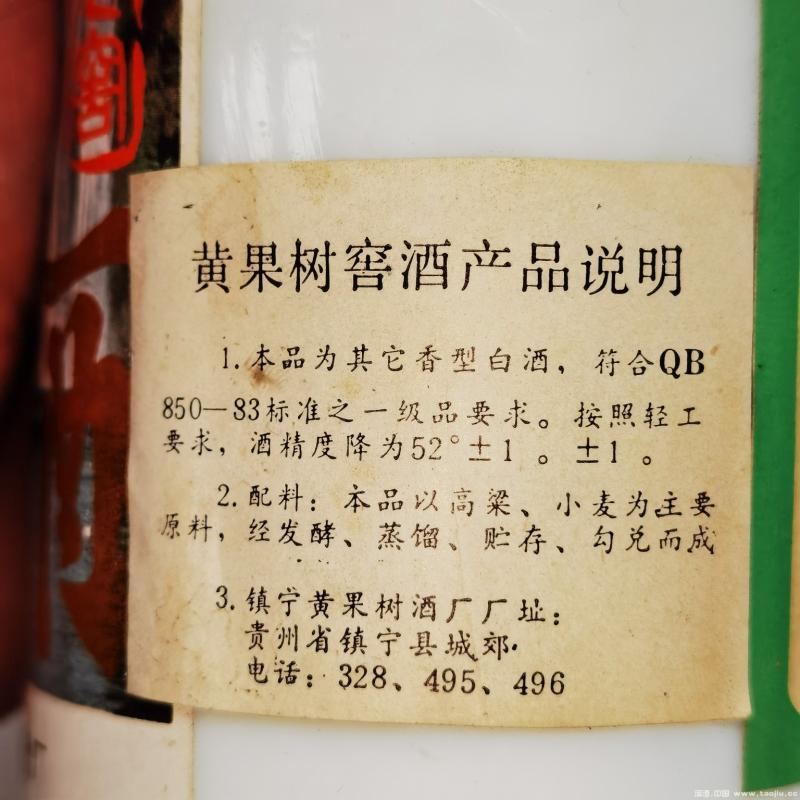 窖
黄果树窖酒产品说明
1.本品为其它香型白酒，符合QB
850—83标准之一级品要求。按照轻工
要求，酒精度降为52°±1。±1。
2.配料：本品以高粱、小麦为主要
原料，经发酵、蒸馏、贮存、勾兑而成
3.镇宁黄果树酒厂厂址：
贵州省镇宁县城郊.
电话：328、495、496
www.taojiu.cc